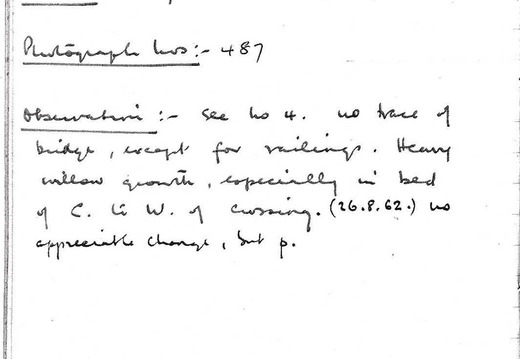 Photograph Nos:- 487
Observation :- See No 4. No trace of
bridge, except for railings. Heavy
willow growth, especially in bed
of C. to W. of crossing. (26.8.62.) No
appreciable change, but p.